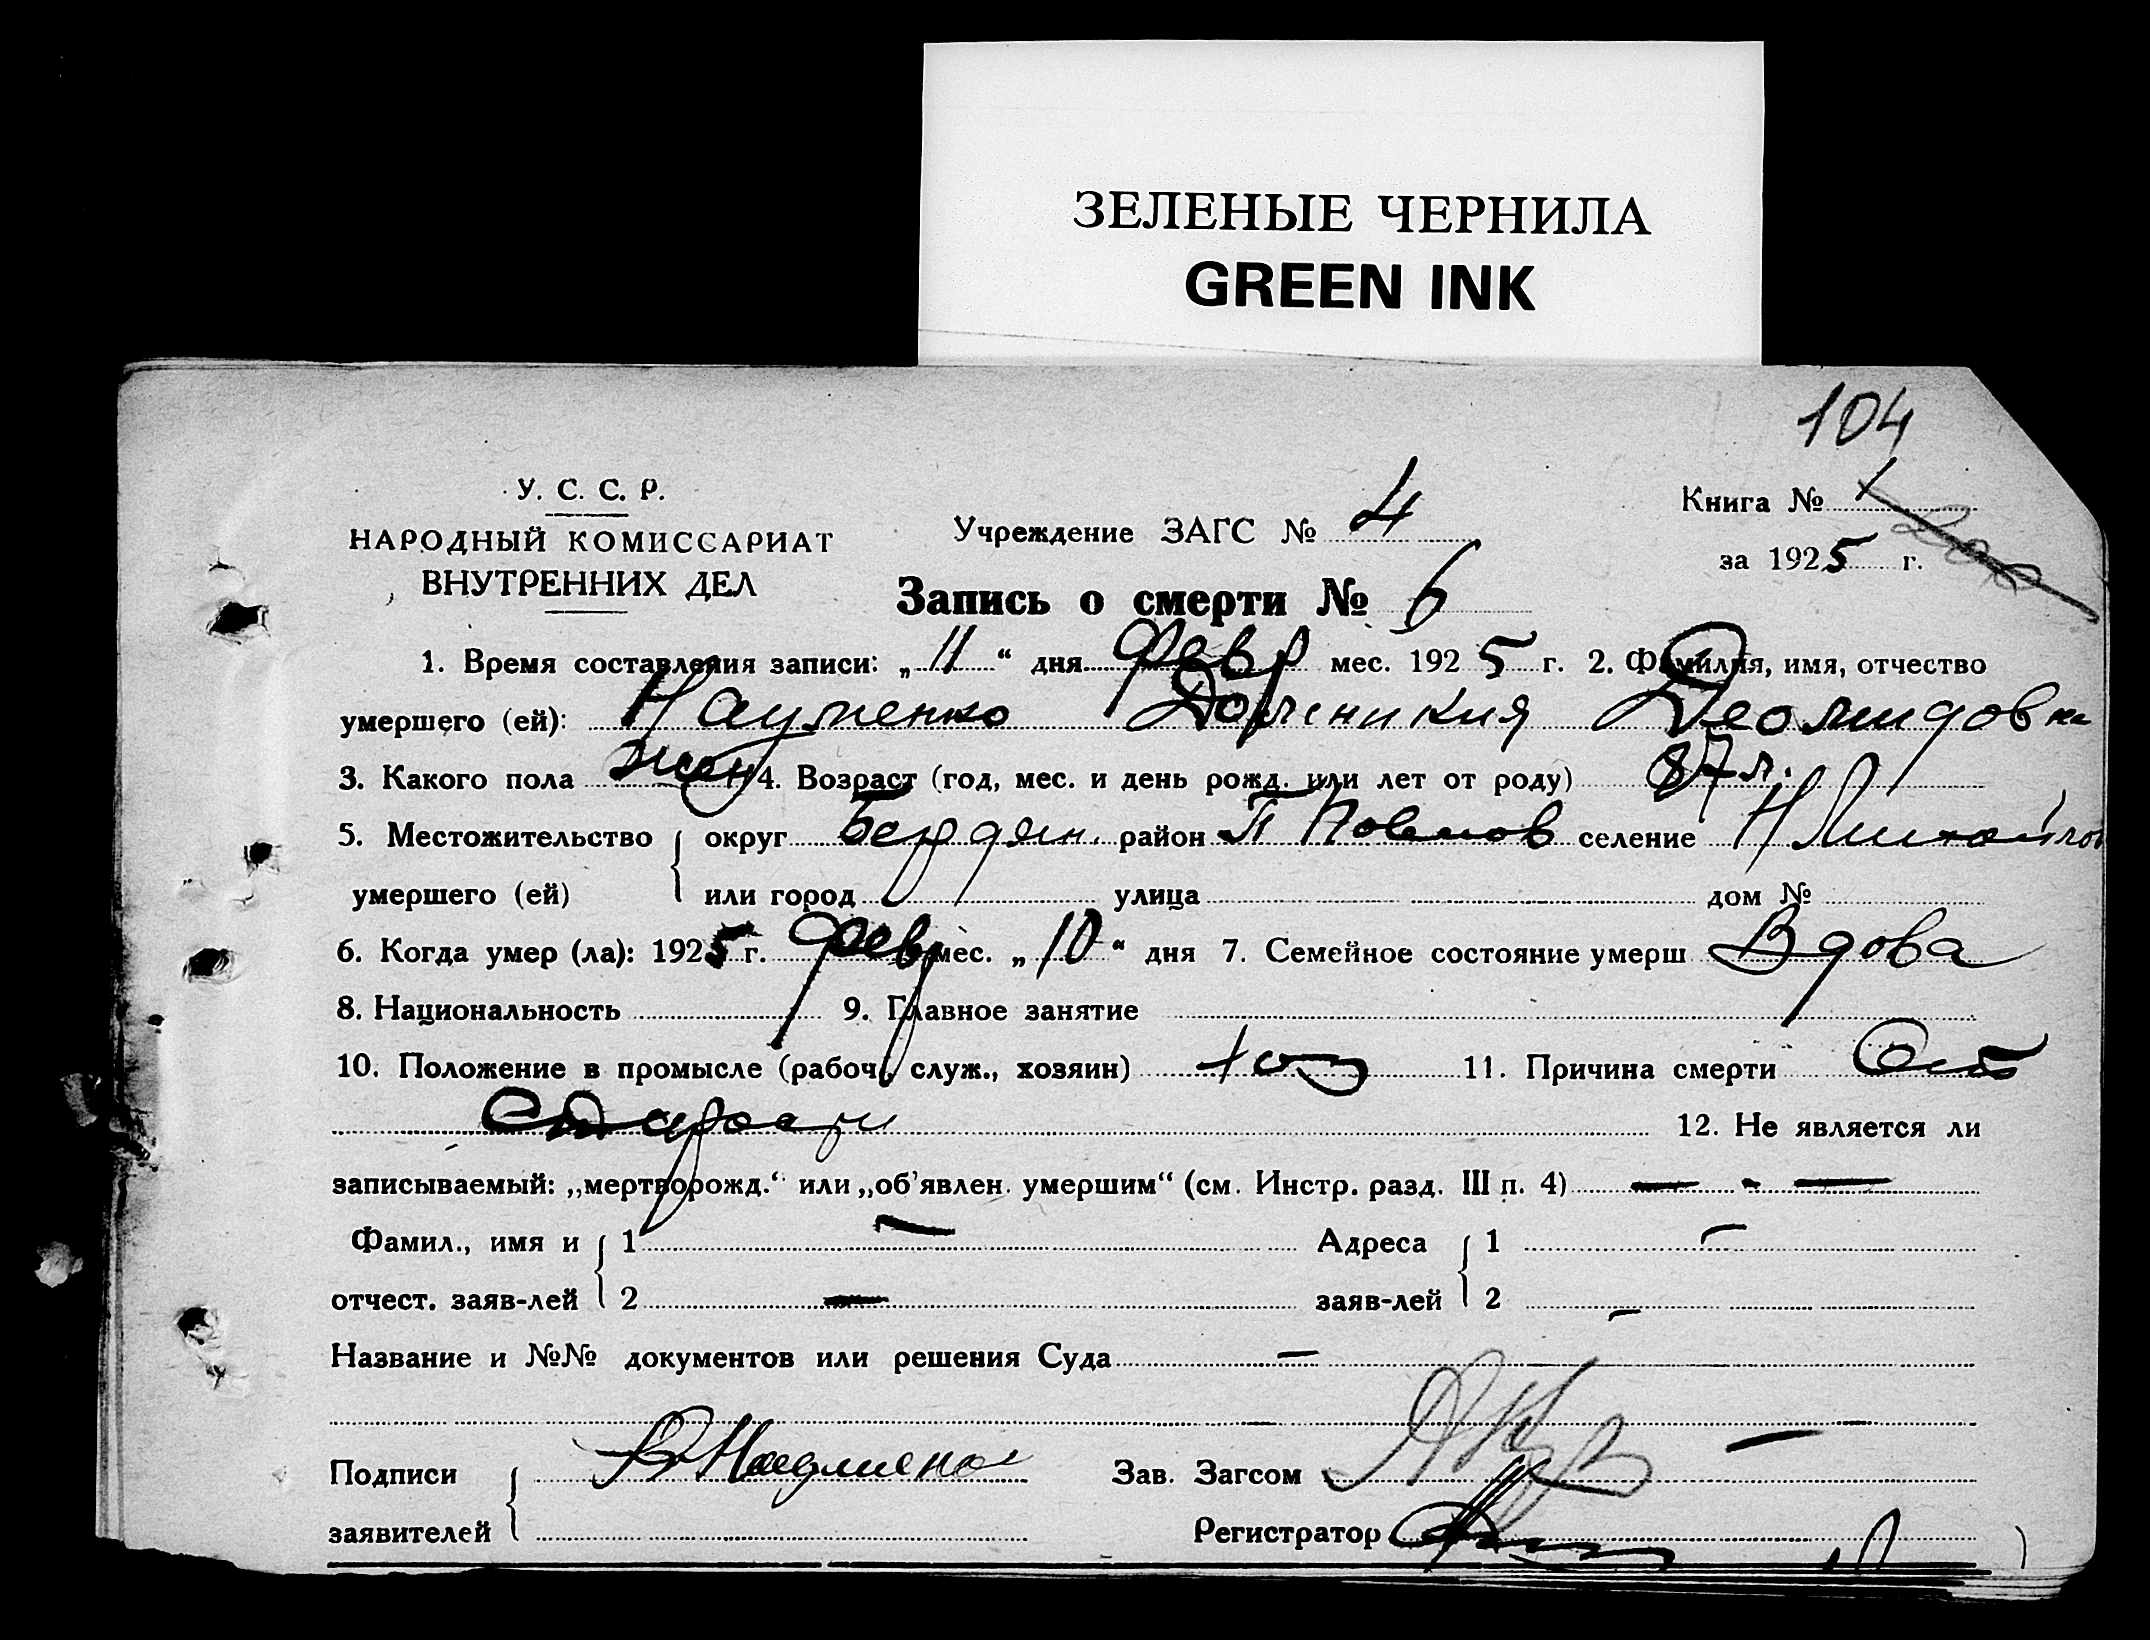 ЗЕЛЕНЫЕ ЧЕРНИЛА
GREEN INK
104
У. С. С. Р.
НАРОДНЫЙ КОМИССАРИАТ
ВНУТРЕННИХ ДЕЛ
Учреждение ЗАГС № 4
Книга № 1
за 1925 г.
Запись о смерти № 6
1. Время составления записи: „11“ дня февр мес. 1925 г. 2. Фамилия, имя, отчество
умершего (ей): Науменко Доминикия Деомидовна
3. Какого пола жен 4. Возраст (год, мес. и день рожд. или лет от роду) 87 л.
5. Местожительство округ Бердян. район селение Н Михайлов
умершего (ей) или город улица дом №
6. Когда умер (ла): 1925 г. февр мес. „10“ дня 7. Семейное состояние умерш Вдова
8. Национальность 9. Главное занятие
10. Положение в промысле (рабоч., служ., хозяин) хоз 11. Причина смерти От
старости 12. Не является ли
записываемый: „мертворожд.“ или „об'явлен. умершим“ (см. Инстр. разд. III п. 4) — - —
Фамил., имя и 1 — Адреса 1 —
отчест. заяв-лей 2 — заяв-лей 2 —
Название и №№ документов или решения Суда —
Подписи Науменко Зав. Загсом
заявителей Регистратор